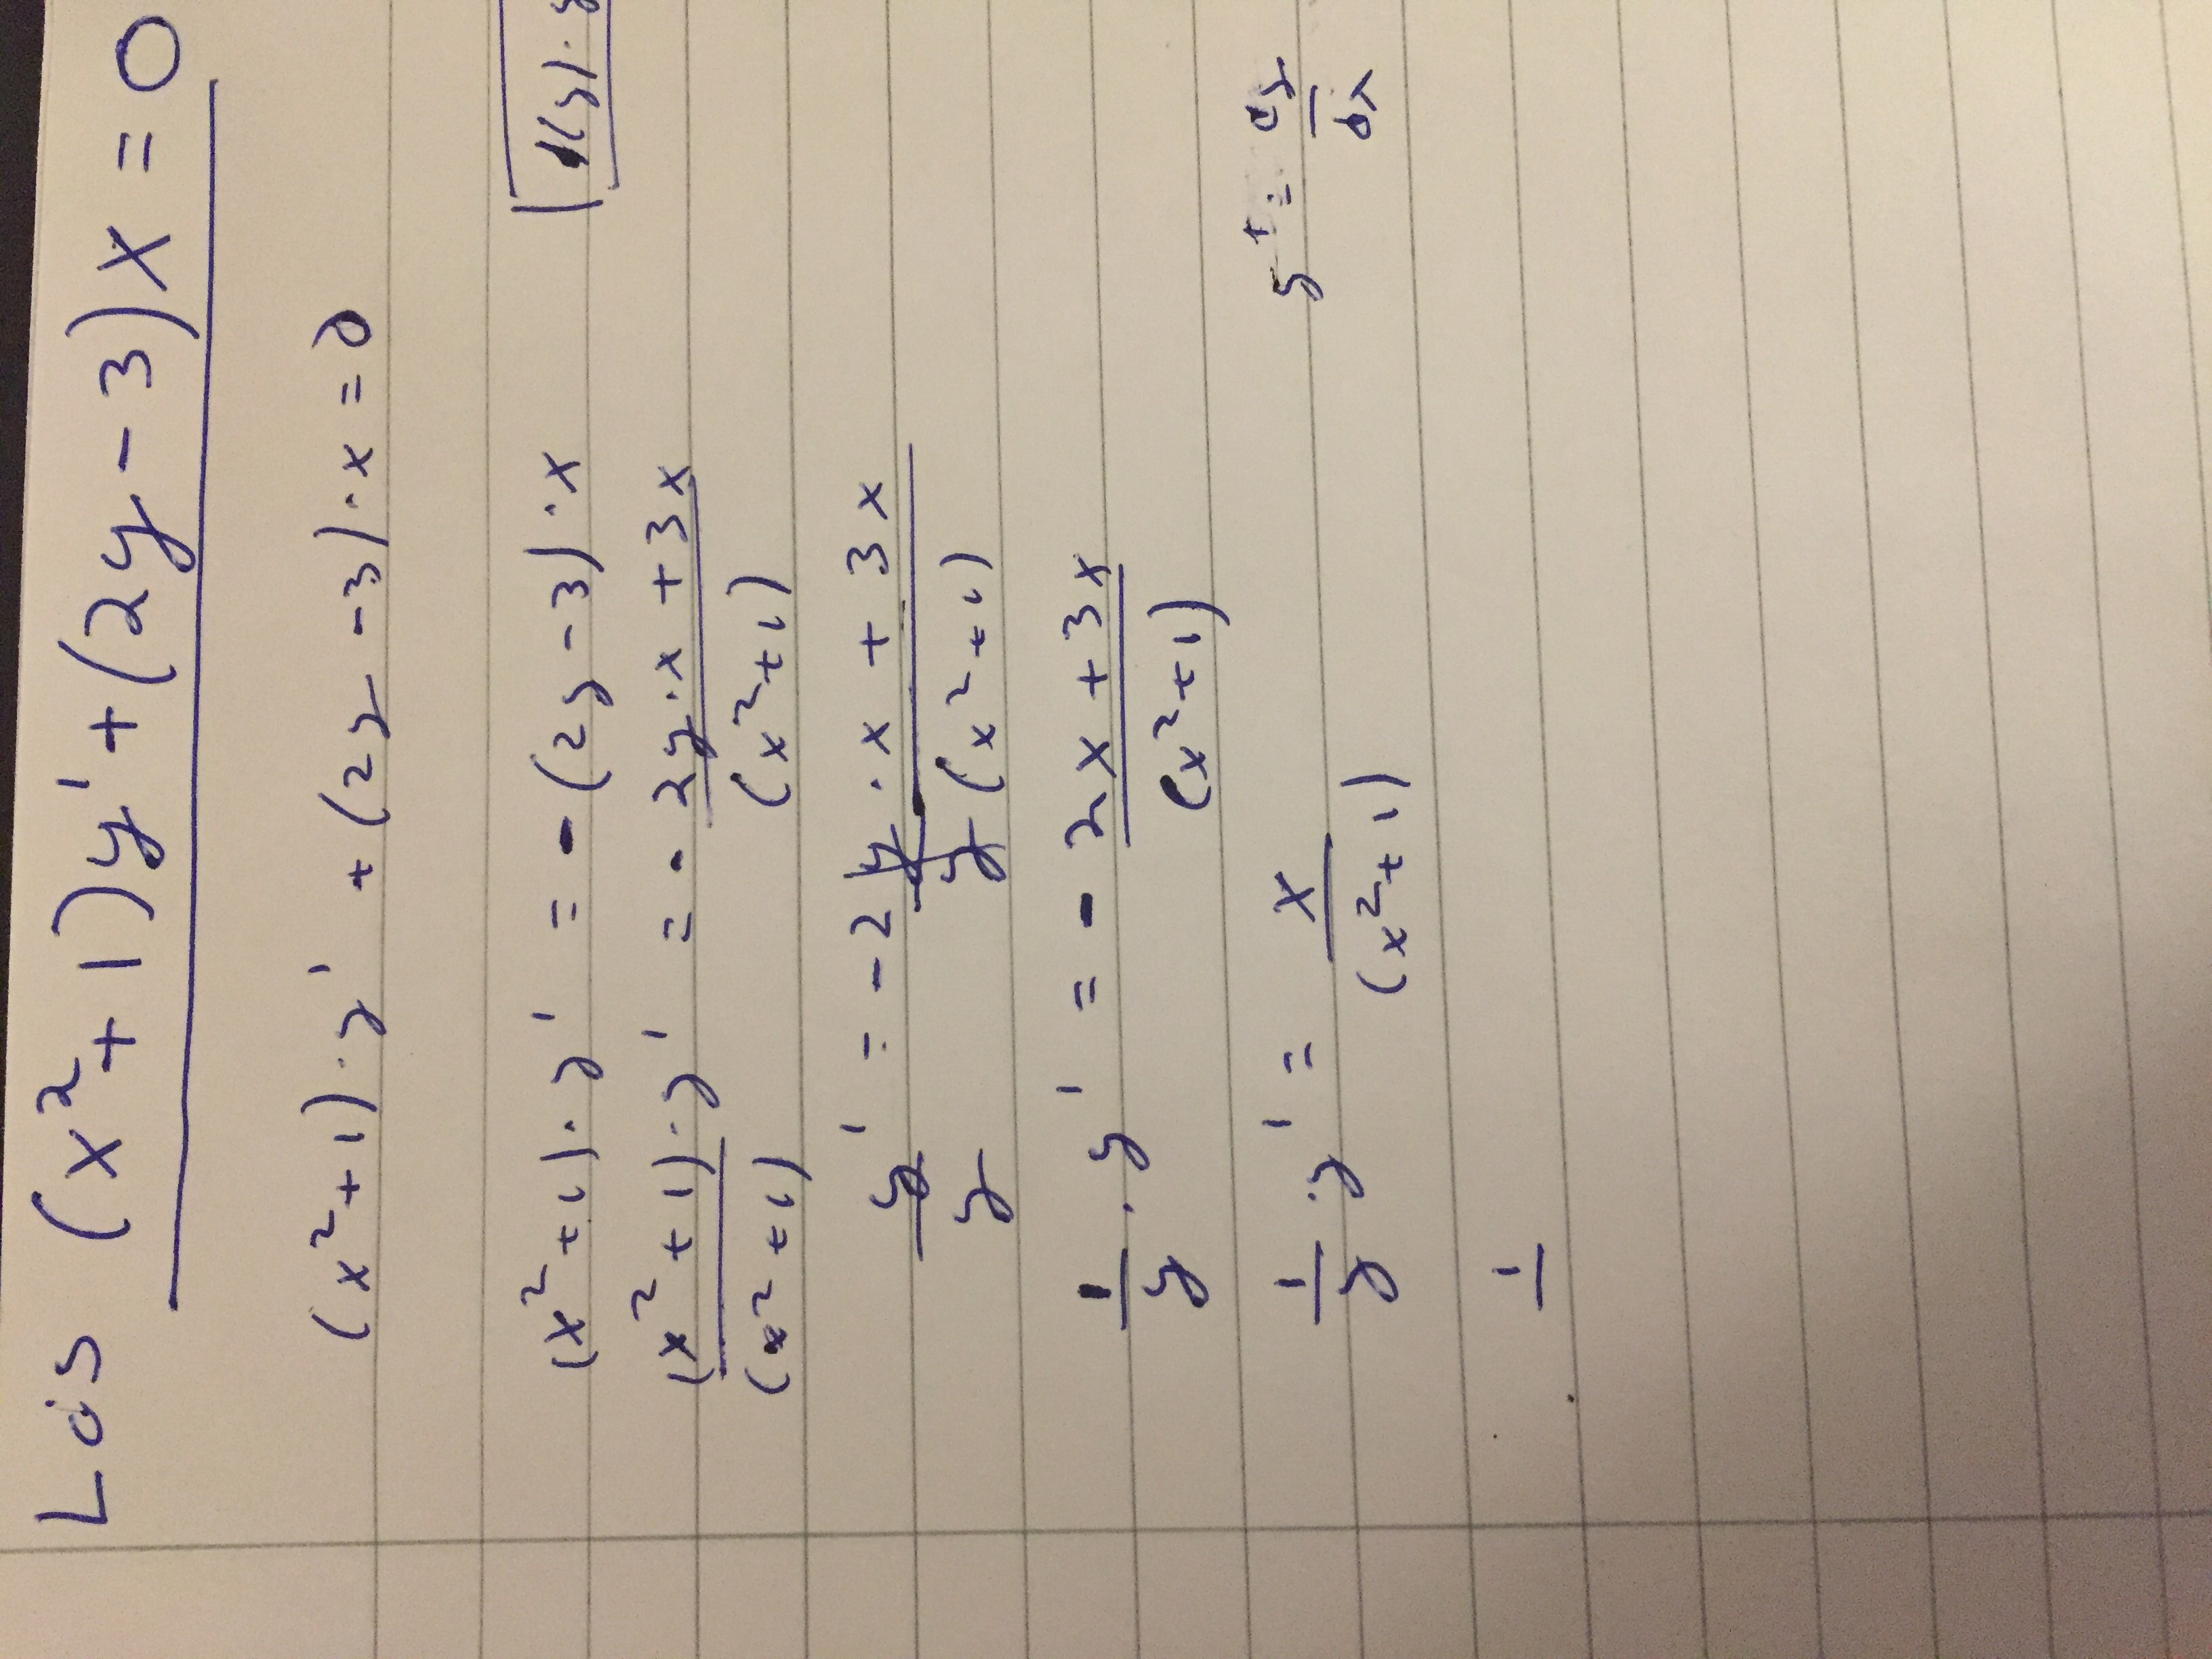 Løs (x²+1)y'+(2y-3)x=0
(x²+1)·y' +(2y-3)·x=0
(x²+1)·y' = -(2y-3)·x
(x²+1)·y'/(x²+1) = -2y·x+3x/(x²+1)
y'/y = -2y·x+3x/y(x²+1)
1/y·y' = -2x+3x/(x²+1)
1/y·y' = x/(x²+1) y' = dy/dx
1